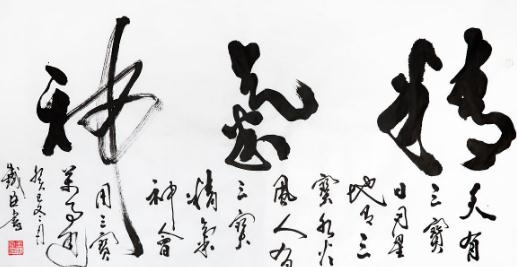 精氣神
天有
三寶
日月星
地有三
寶水火
風人有
三寶
精氣
神會
用三寶
萬事通
癸巳 月
書